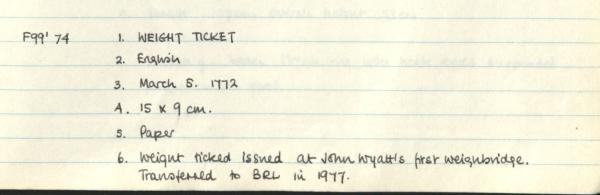 F99'74 1. WEIGHT TICKET
2. English
3. March 5. 1772
4. 15 x 9 cm.
5. Paper
6. Weight ticked issued at John Wyatt's first weighbridge.
Transferred to BRL in 1977.